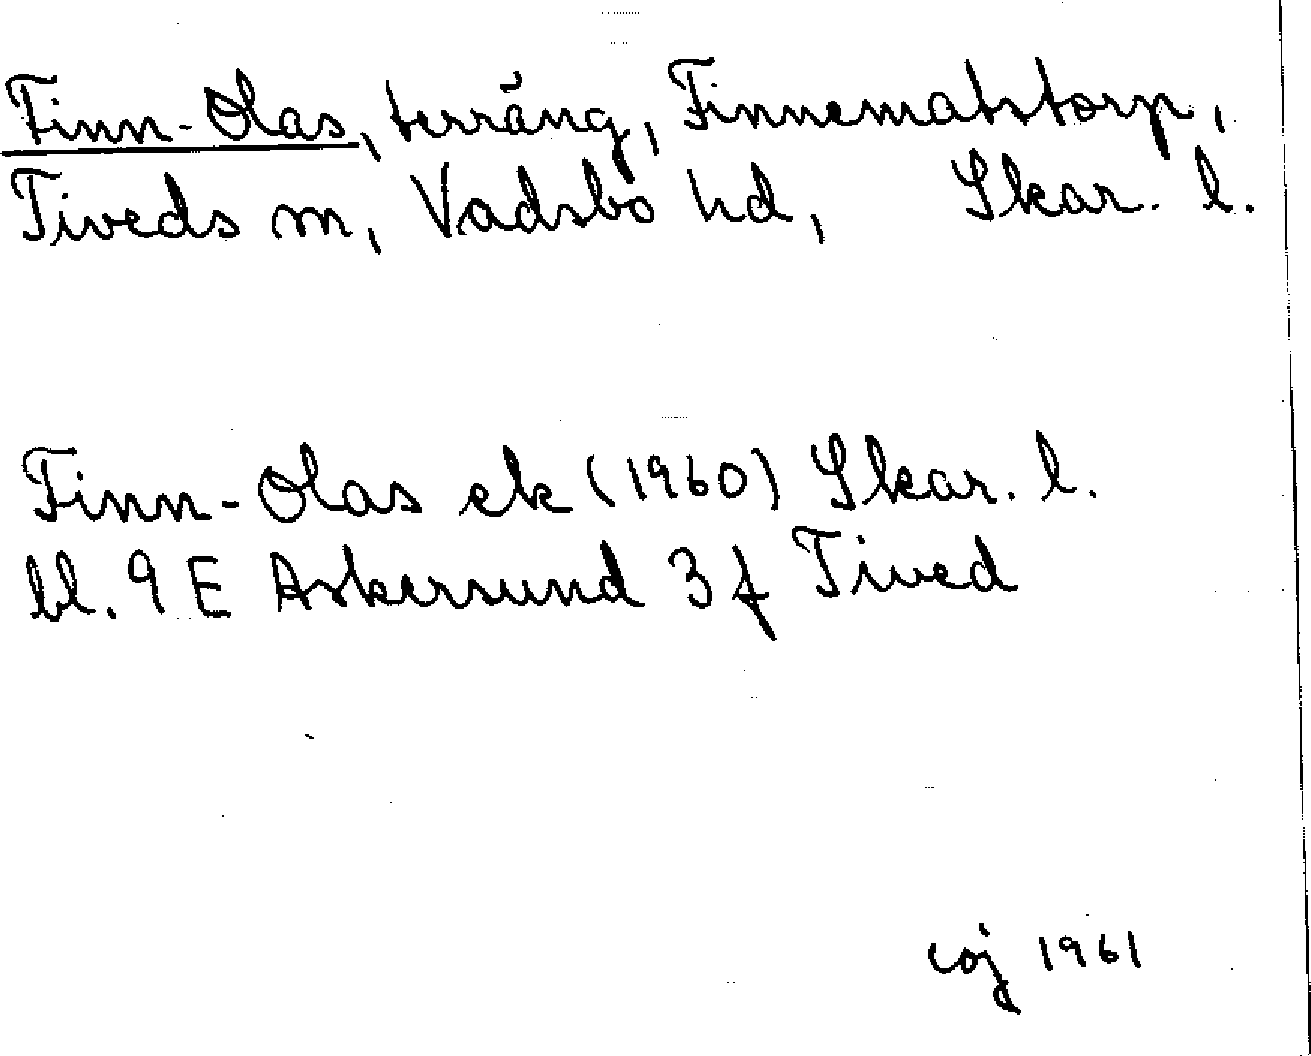 Finn-Olas, terräng, Finnematstorp,
Tiveds sn, Vadsbo hd, Skar. l.
Finn-Olas ek (1960) Skar. l.
bl. 9 E Askersund 3 f Tived
coj 1961